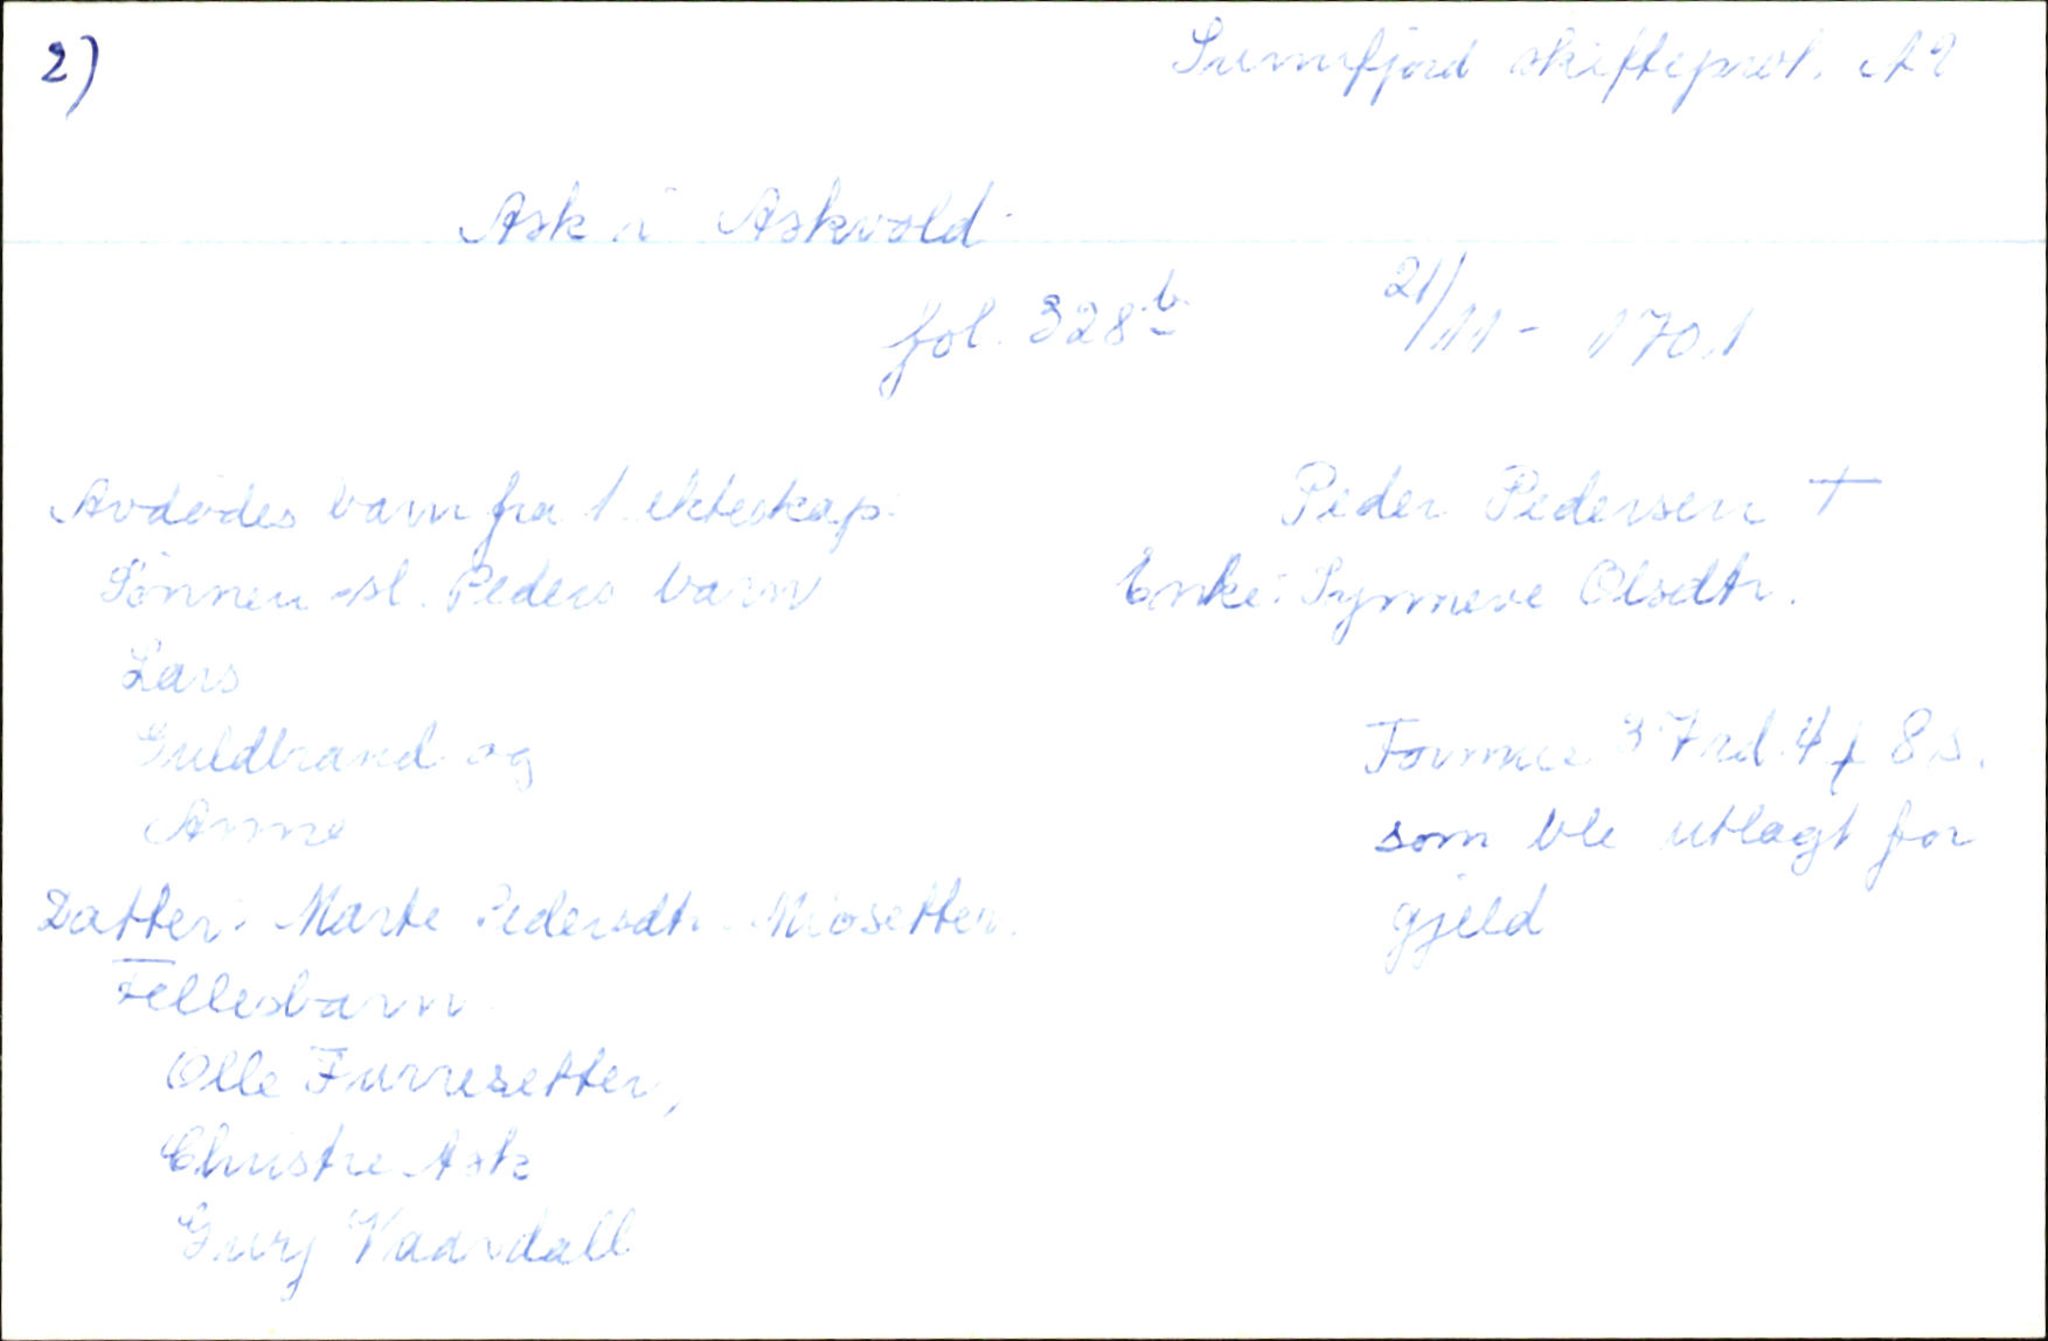 2)
Sunnfjord skifteprot. A 2
Ask i Askvold
fol. 328 b.
21/11 - 1701
Avdødes barn fra 1. ekteskap.
Sønnen sl. Peders barn
Lars
Guldbrand og
Anne
Datter: Marte Pedersdtr. Miosetter.
Fellesbarn
Olle Furresetter,
Christre Ask
Gurj Vaardall
Peder Pedersen †
Enke: Synneve Olsdtr.
Formue 37 rd. 4 8 s.
som ble utlagt for
gjeld